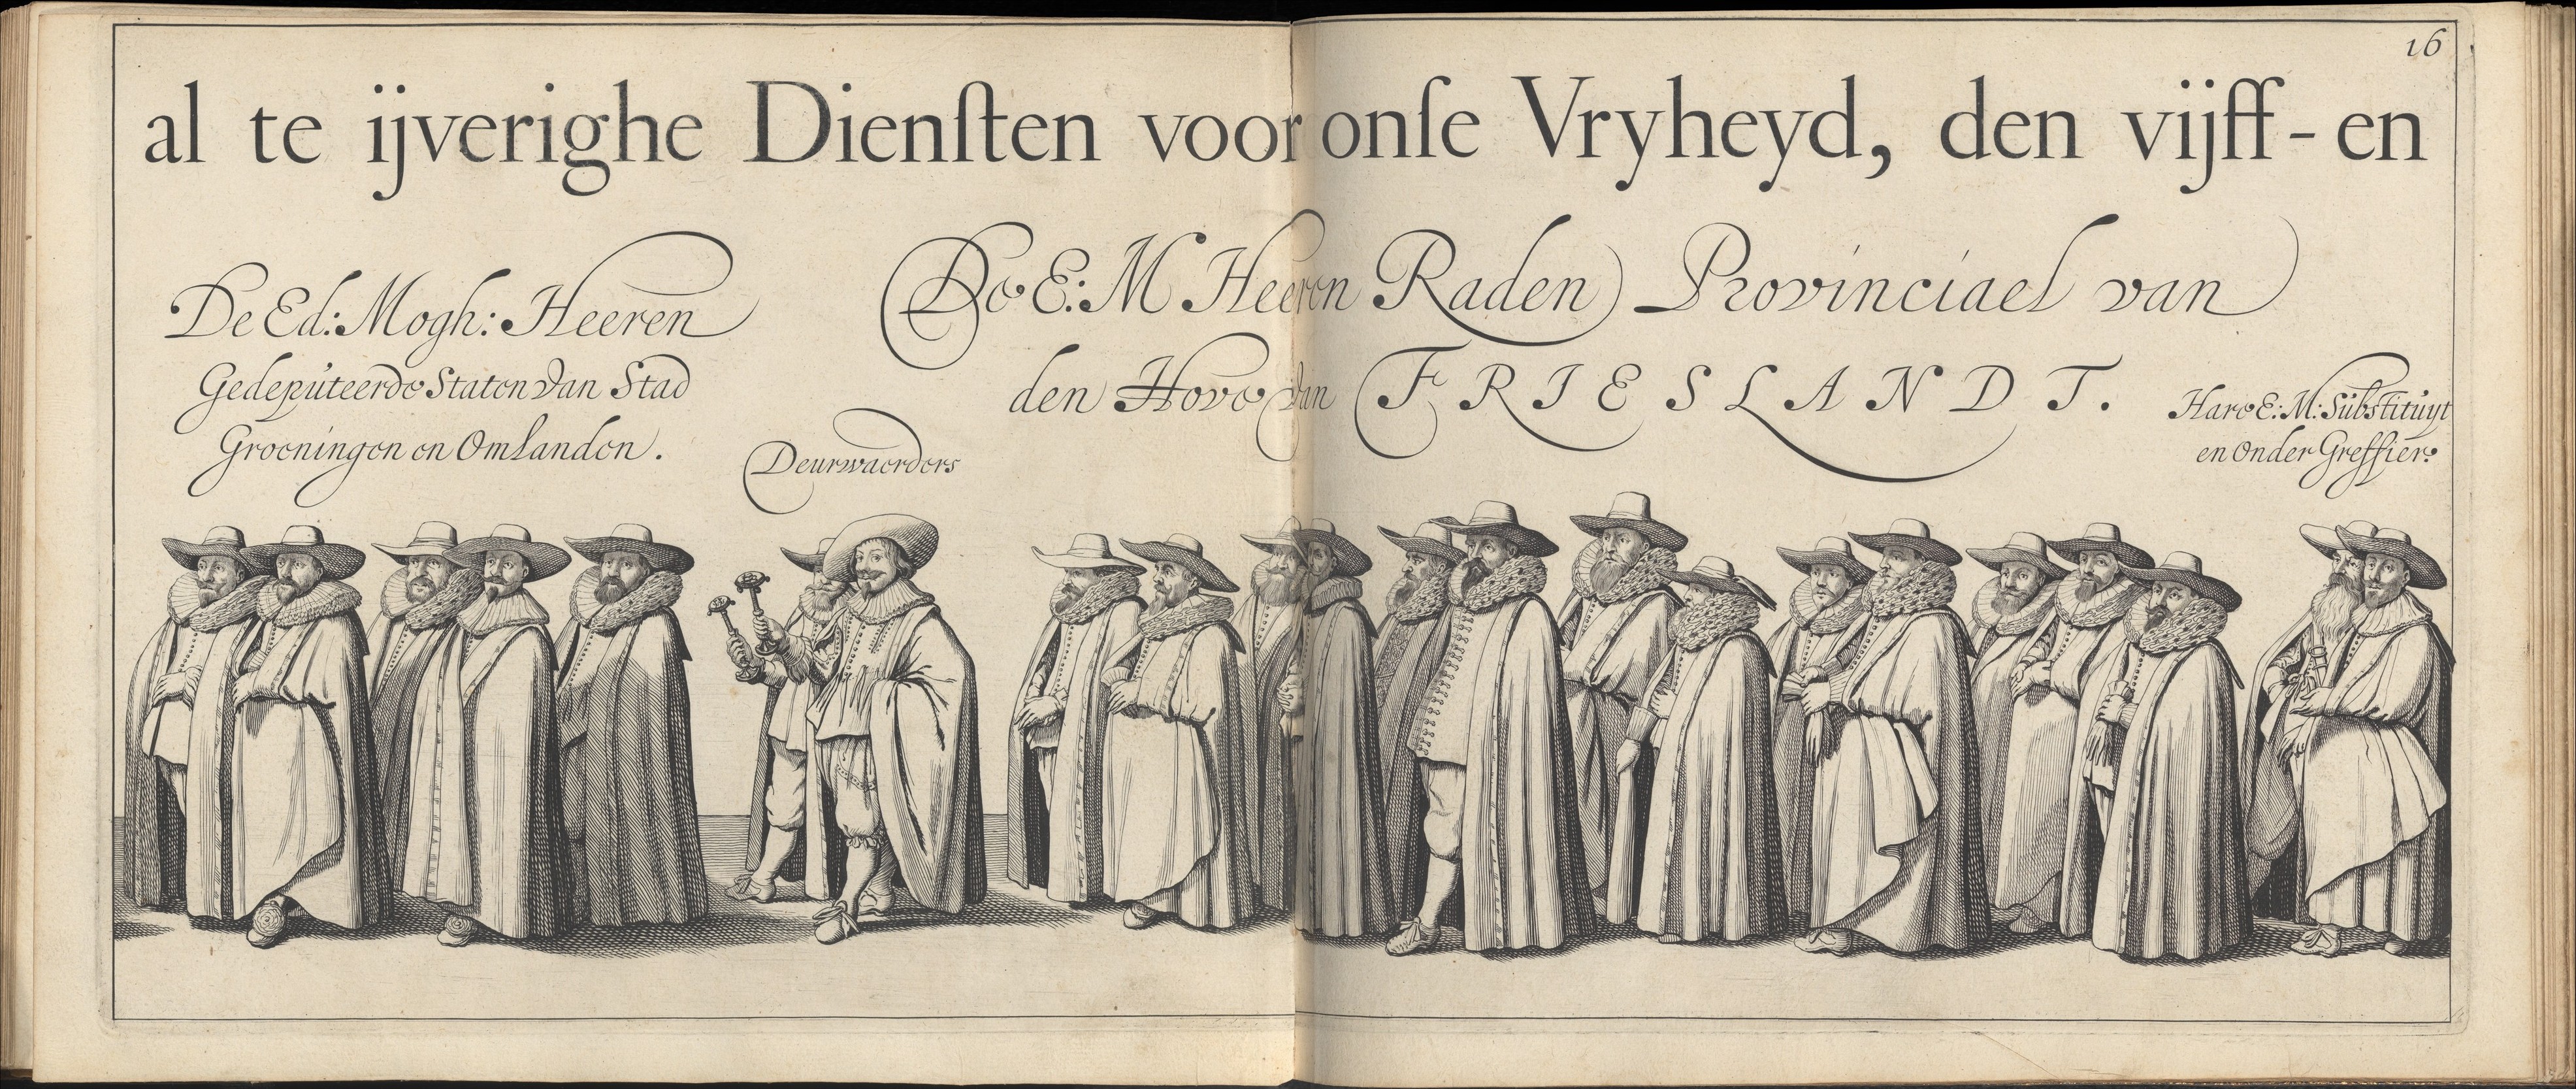 16
al te ijverighe Dienſten voor onſe Vryheyd, den vijff-en
De Ed: Mogh: Heeren
Gedeputeerde Staten van Stad
Groeningen en Omlanden.
Deurwaerders
De E: M Heeren Raden Provinciael van
den Hove van FRIESLANDT.
Hare E: M: Substituyt
en Onder Greffier.